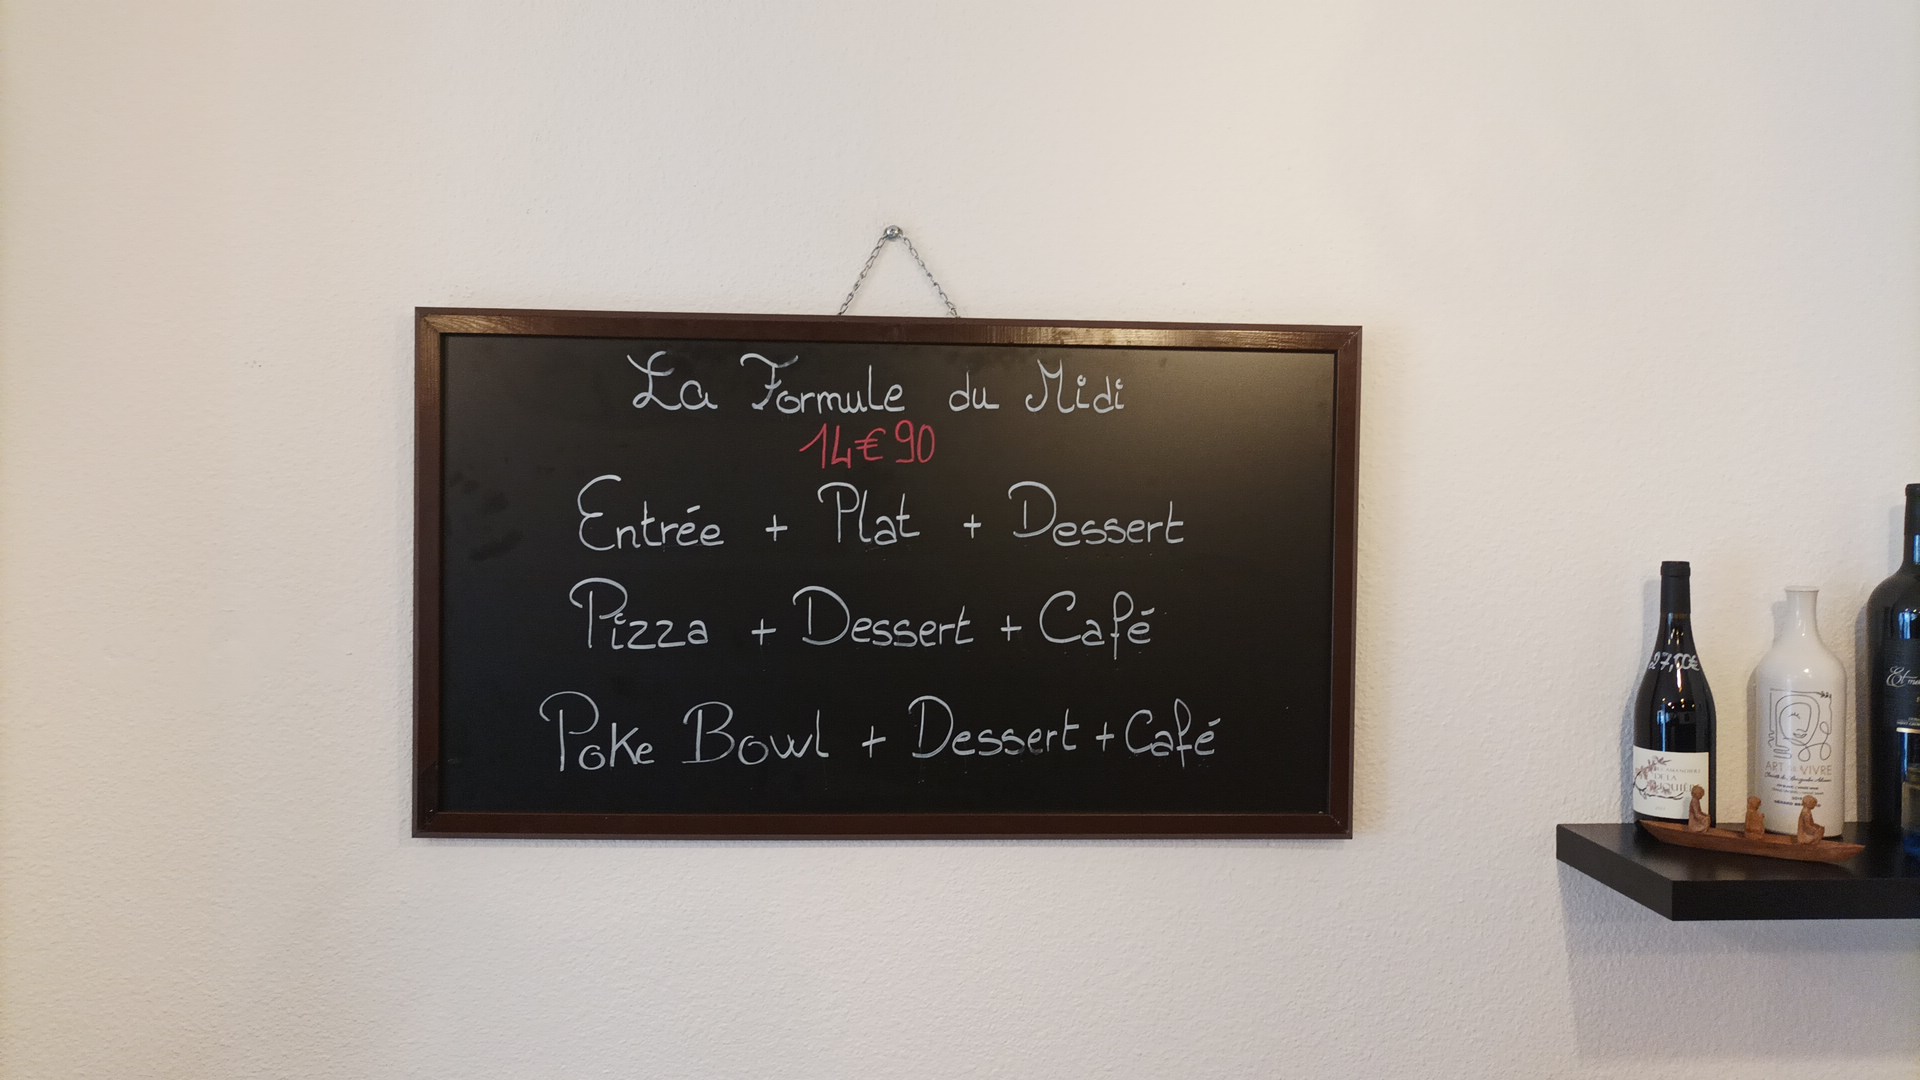 La Formule du Midi
14€90
Entrée + Plat + Dessert
Pizza + Dessert + Café
Poke Bowl + Dessert + Café
27,00€
DE LA
ART DE VIVRE